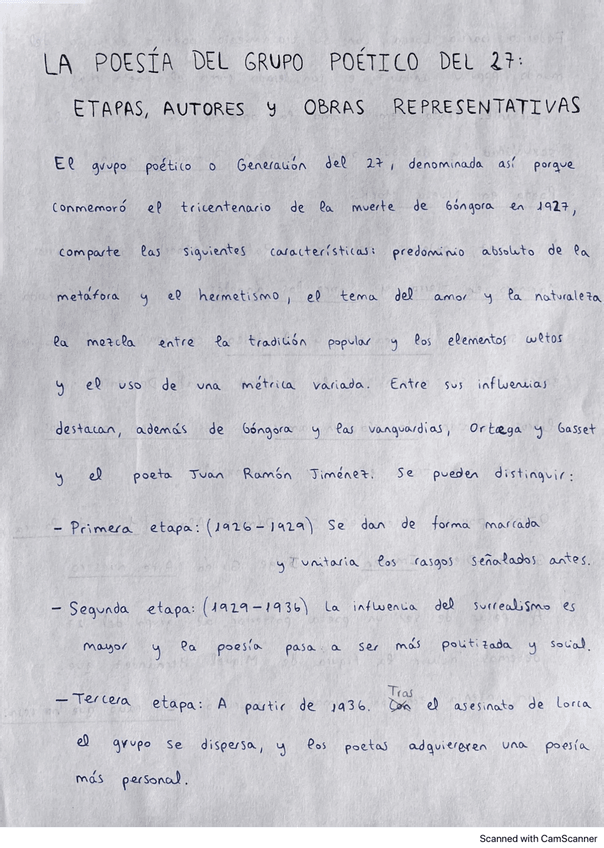 LA POESÍA DEL GRUPO POÉTICO DEL 27:
ETAPAS, AUTORES y OBRAS REPRESENTATIVAS
El grupo poético o Generación del 27, denominada así porque
conmemoró el tricentenario de la muerte de Góngora en 1927,
comparte las siguientes características: predominio absoluto de la
metáfora y el hermetismo, el tema del amor y la naturaleza
la mezcla entre la tradición popular y los elementos cultos
y el uso de una métrica variada. Entre sus influencias
destacan, además de Góngora y las vanguardias, Ortega y Gasset
y el poeta Juan Ramón Jiménez. Se pueden distinguir:
- Primera etapa: (1926-1929) Se dan de forma marcada
y unitaria los rasgos señalados antes.
- Segunda etapa: (1929-1936) La influencia del surrealismo es
mayor y la poesía pasa a ser más politizada y social.
- Tercera etapa: A partir de 1936. Tras el asesinato de Lorca
el grupo se dispersa, y los poetas adquieren una poesía
más personal.
Scanned with CamScanner